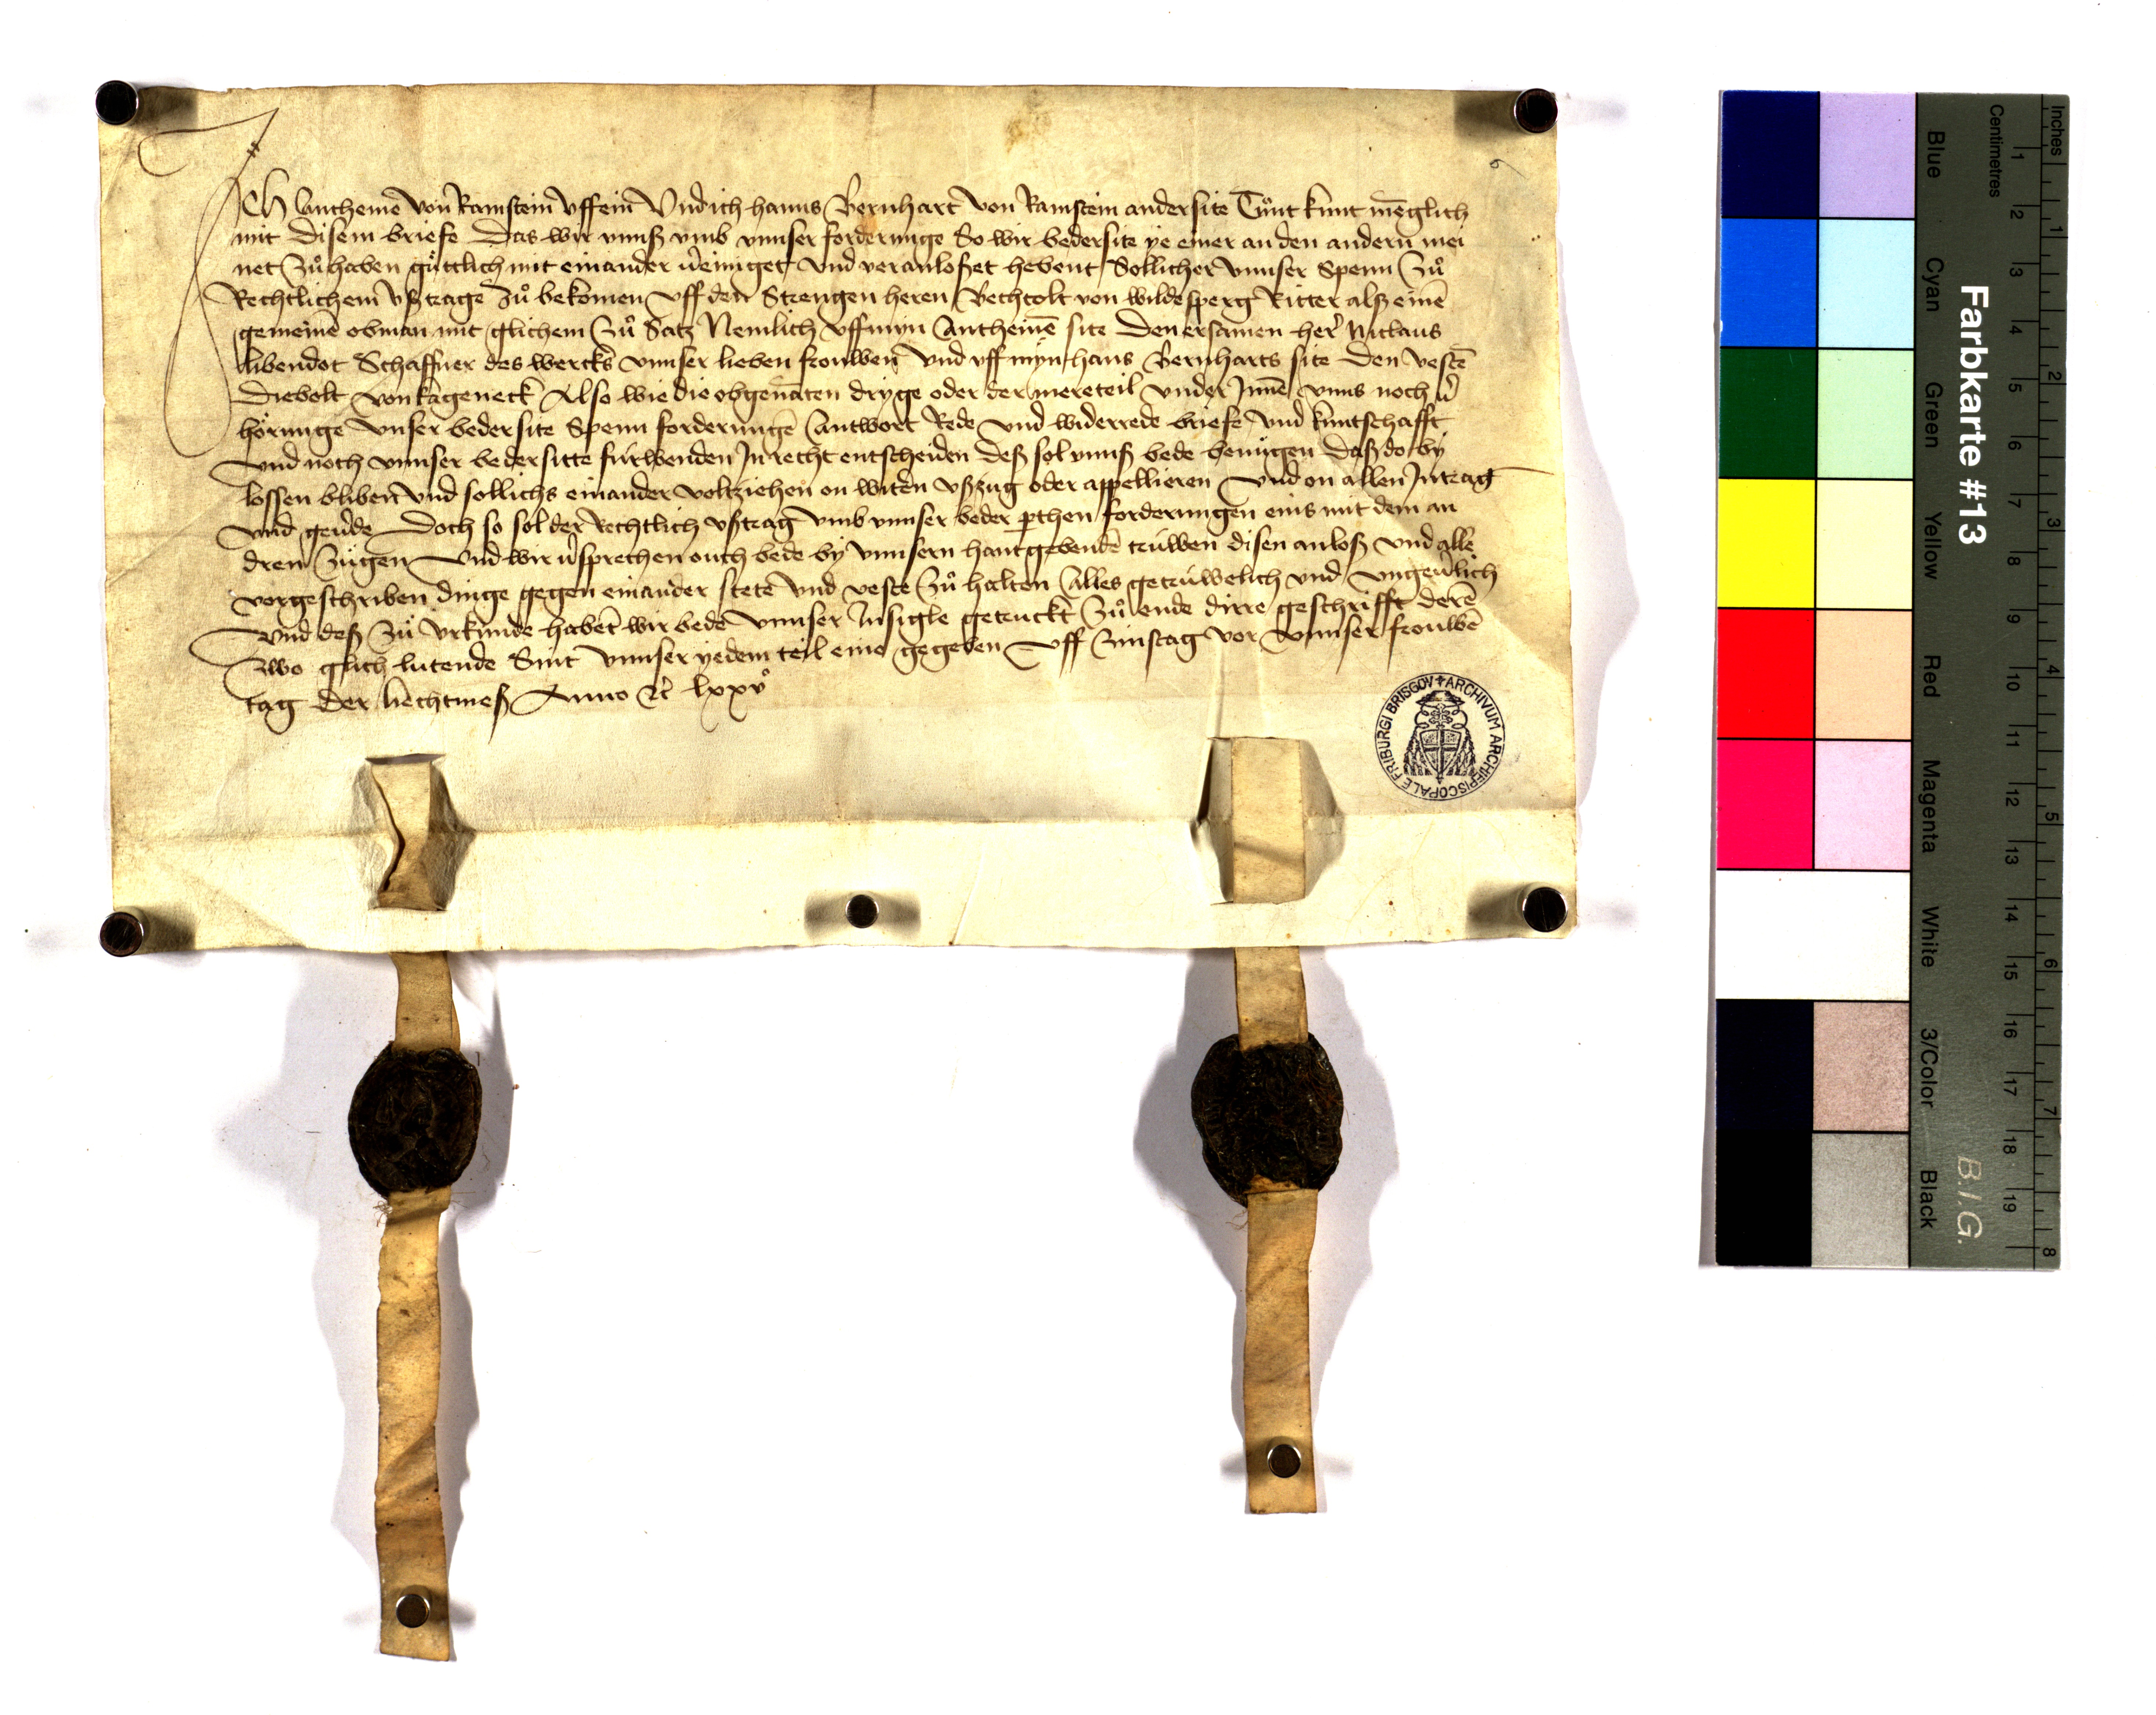 Ich Antheme von Ramstein vffein Vnd ich hanns Bernhart von Ramstein andersite Tůnt kunt mēglich
mit disem briefe Das wir vnnß vmb vnnser forderunge So wir bedersite ye einer an den andern mei
net Zů haben gůttlich mit einander v̉einiget vnd veranloßet hebent Sollicher vnnser Spenn Zů
Rechtlichem vßtrage Zů bekomen vff den Strengen heren Bechtolt von wildesperg Ritter alß einē
gemeinē obman mit glichem Zů Satz Nemlich vff myn Antheinē site Den ersamen her̉ Niclaus
libendot Schaffner des wercks vnnser lieben frouwen vnd vff myn hans Bernharts site Den vestē
Diebolt von kageneck Also wie die obgenāten dryge oder der mereteil vnder Jnnē vnns noch v̉
hörunge vnser bedersite Spenn forderungē Antwort Rede vnd widerrede briefe vnd kuntschafft
vnd noch vnnser bedersitte fúrwenden Jn recht entscheiden deß sol vnnß bede benůgen daß do by
lossen bliben vnd sollichs einander voltziehen on witer̉n vßzug oder appellieren vnd on allen Jntrag
vnd geu̇de Doch so sol der Rechtlich vßtrag vmb vnnser beder ꝑthen forderungen eins mit dem an
dren Zůgen vnd wir v̉sprechen ouch bede by vnnsern hantgebendē trúwen disen anloß vnd alle
vorgeschriben dinge gegen einander stete vnd veste Zů halten Alles getrúwelich vnd vngeu̇lich
vnd deß Zů vrkunde habent wir bede vnnser Jnsigle getruckt Zů ende dirre geschrifft derē
Zwo glich lutende Sint vnnser yedem teil eine gegeben vff Zinstag vor vnnser frouwē
tag der liechtmeß Anno ꝛc̉ lxxvº
ARCHIVUM ARCHIEPISCOPALE FRIBURGI BRISGOV
Farbkarte #13
B.I.G.
Inches 1 2 3 4 5 6 7 8
Centimetres 1 2 3 4 5 6 7 8 9 10 11 12 13 14 15 16 17 18 19
Blue Cyan Green Yellow Red Magenta White 3/Color Black